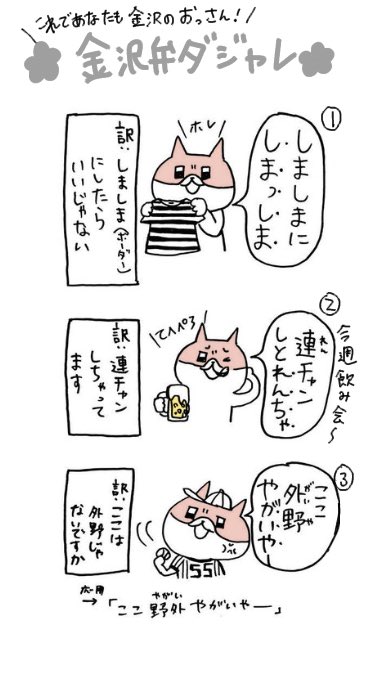 これであなたも金沢のおっさん!
金沢弁ダジャレ
①
しましまに
しまっしま
ホレ
訳:しましま(ボーダー)
にしたら
いいじゃない
②
今週飲み会〜
連チャン
れん
しとれんちゃ
てへぺろ
訳:連チャン
しちゃって
ます
③
ここ
外野
がいや
やがいや
55
訳:ここは
外野じゃ
ないですか
応用
→「ここ野外やがいやー」
やがい